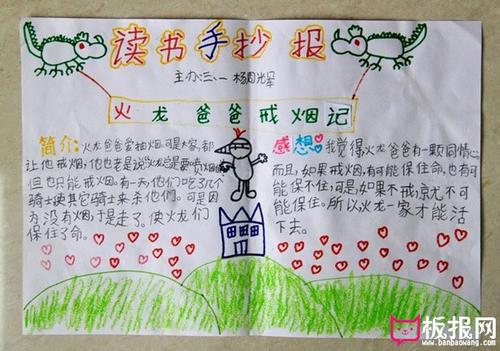 读书手抄报
主办:三、一 杨周光军
火龙爸爸戒烟记
简介:火龙爸爸爱抽烟,可是大家,都
让他戒烟,他也老是说火龙总是要喷烟的
但也只能戒烟。有一天,他们吃了几个
骑士使其它骑士来杀他们。可是因
为没有烟,于是走了。使火龙们
保住了命。
感想:我觉得火龙爸爸有一颗同情心
而且,如果戒烟,有可能保住命,也有可
能保不住,可是,如果不戒,就不可
能保住。所以火龙一家才能活
下去。
板报网
www.banbaowang.com